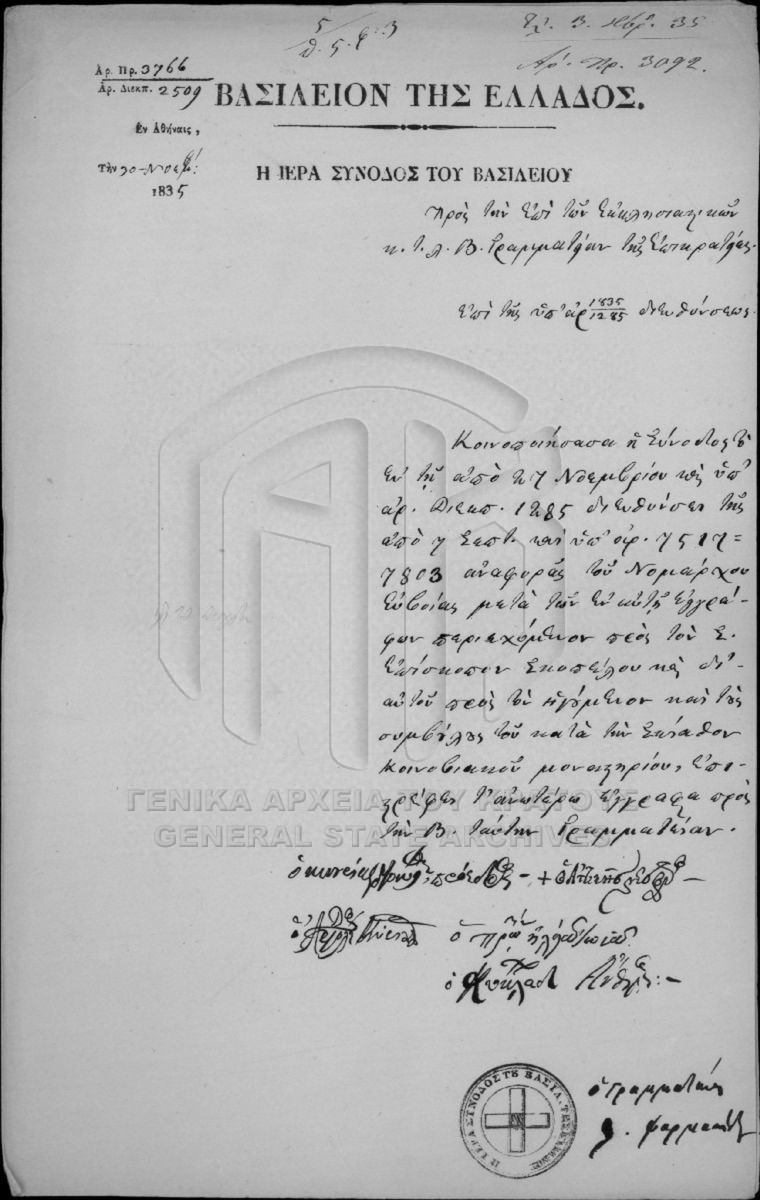 5
θ. 5. φ. 3
3. 35
Αρ. Πρ. 3092.
Αρ. Πρ. 3766
Αρ. Διεκπ. 2509
ΒΑΣΙΛΕΙΟΝ ΤΗΣ ΕΛΛΑΔΟΣ.
Εν Αθήναις,
Την 30 Νοεμβ:
1835
Η ΙΕΡΑ ΣΥΝΟΔΟΣ ΤΟΥ ΒΑΣΙΛΕΙΟΥ
Πρὸς τὴν ἐπὶ τῶν Ἐκκλησιαστικῶν
κ. τ. λ. Β. Γραμματείαν τῆς Ἐπικρατείας.
Ἐπὶ τῆς ὑπ' ἀρ 1835/1285 διευθύνσεως.
Κοινοποιήσασα ἡ Σύνοδος τὸ
ἐν τῇ ἀπὸ 27 Νοεμβρίου καὶ ὑπ'
ἀρ. Διεκπ. 1285 διευθύνσει τῆς
ἀπὸ 7 Σεπτ. καὶ ὑπ' ἀρ. 7517=
7803 ἀναφορᾶς τοῦ Νομάρχου
Εὐβοίας μετὰ τῶν ἐν αὐτῇ ἐγγρά-
φων περιεχόμενον πρὸς τὸν Σ.
Ἐπίσκοπον Σκοπέλου καὶ δι'
αὐτοῦ πρὸς τὸν ἡγούμενον καὶ τοὺς
συμβούλους τοῦ κατὰ τὴν Σκίαθον
κοινοβιακοῦ μοναστηρίου, ἐπι-
στρέφει τ' ἀνωτέρω ἔγγραφα πρὸς
τὴν Β. ταύτην Γραμματείαν.
ΓΕΝΙΚΑ ΑΡΧΕΙΑ ΤΟΥ ΚΡΑΤΟΥΣ
GENERAL STATE ARCHIVES
ὁ πρόεδρος
ὁ
ὁ Κυκλάδων Ἄνθιμος
ὁ Γραμματεὺς
Θ. Φαρμακίδης
Η ΙΕΡΑ ΣΥΝΟΔΟΣ ΤΟΥ ΒΑΣΙΛ. ΤΗΣ ΕΛΛΑΔΟΣ